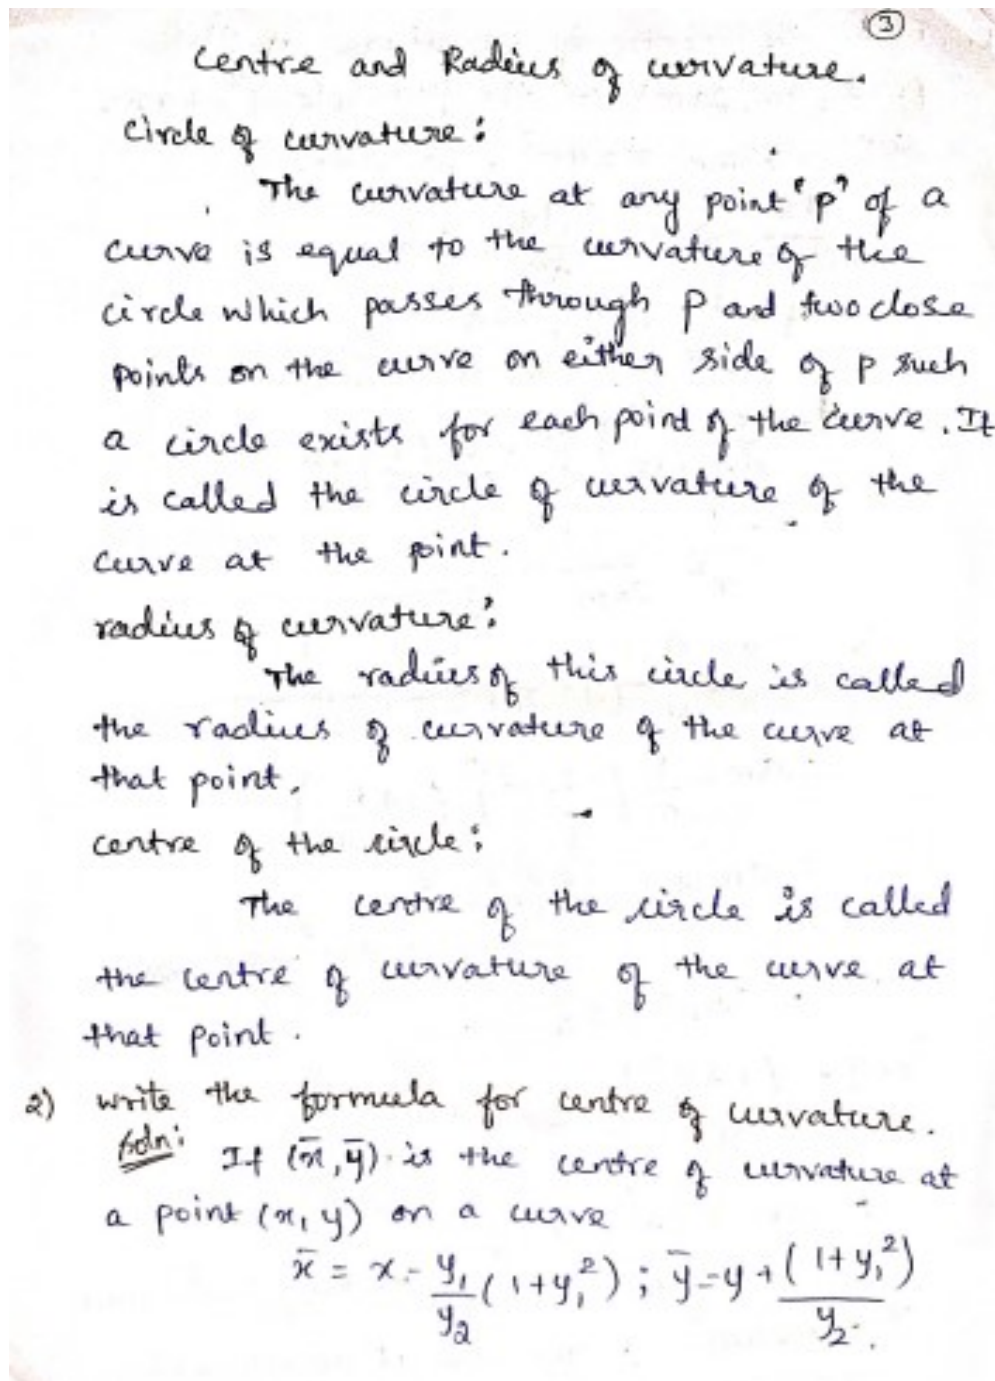 3
Centre and Radius of curvature.
Circle of curvature:
The curvature at any point 'p' of a
curve is equal to the curvature of the
circle which passes through P and two close
points on the curve on either side of p such
a circle exists for each point of the curve. It
is called the circle of curvature of the
curve at the point.
radius of curvature:
The radius of this circle is called
the radius of curvature of the curve at
that point.
centre of the circle:
The centre of the circle is called
the centre of curvature of the curve at
that point.
2) write the formula for centre of curvature.
Soln:
If (x̄, ȳ) is the centre of curvature at
a point (x, y) on a curve
x̄ = x - y₁/y₂ (1+y₁²) ; ȳ = y + (1+y₁²)/y₂.